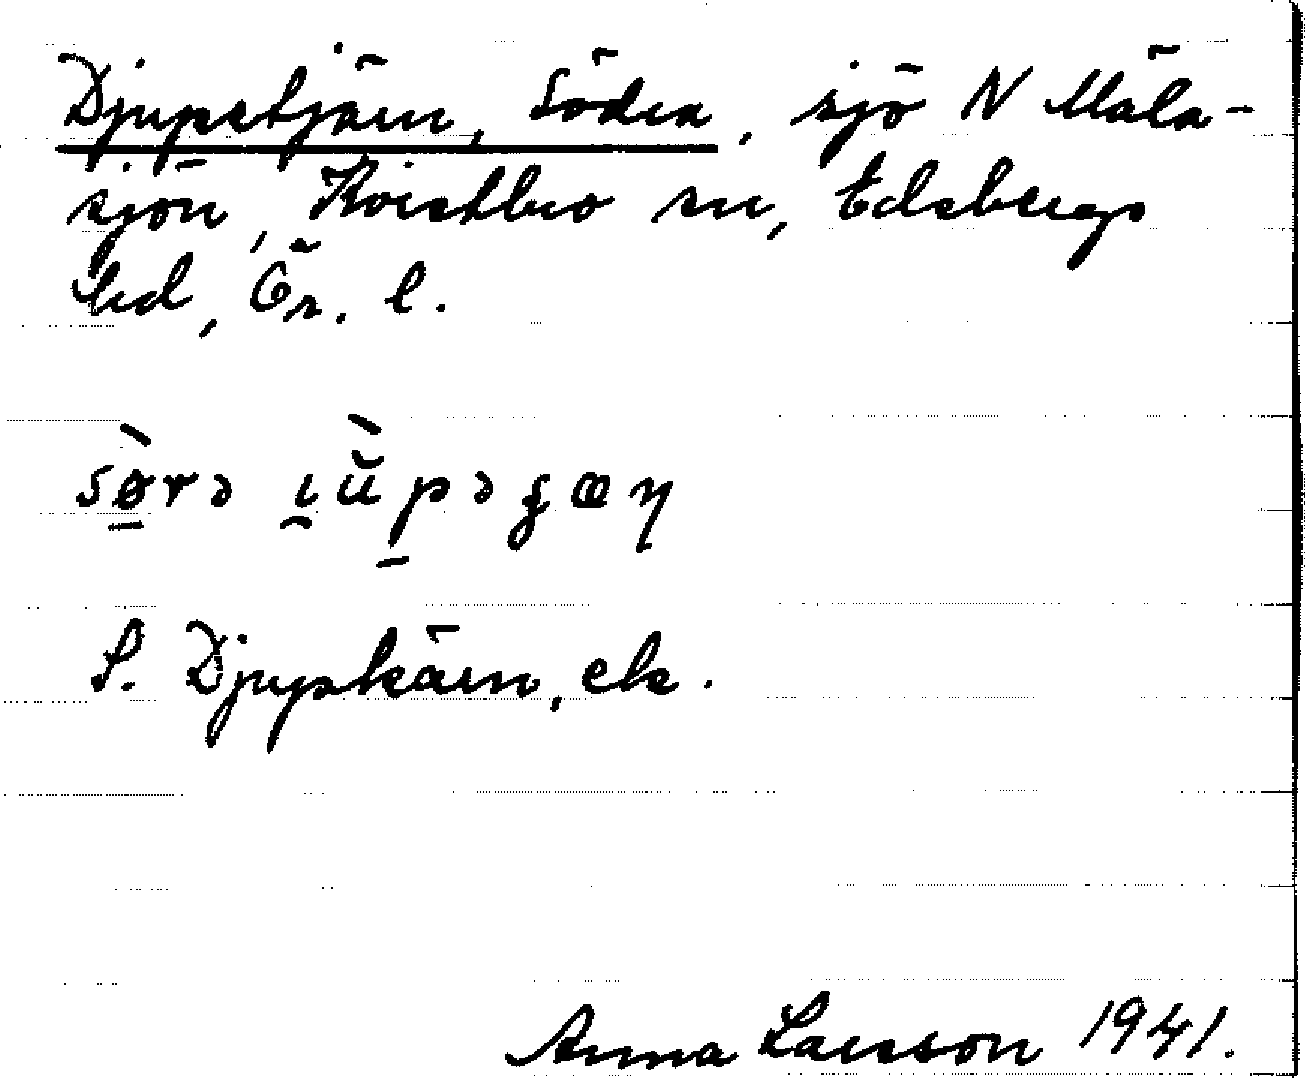 Djupstjärn, Södra, sjö N Måla-
sjön, Kvistbro sn, Edsbergs
hd, Ör. l.
S. Djupkärn, ek.
Anna Larsson 1941.